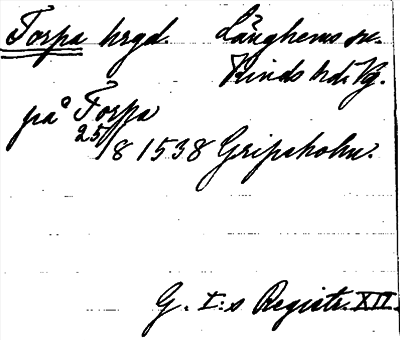 Torpa hrgd. Länghems sn.
Kinds hd. Vg.
på Torpa
25/8 1538 Gripsholm.
G. I:s Registr. XII.